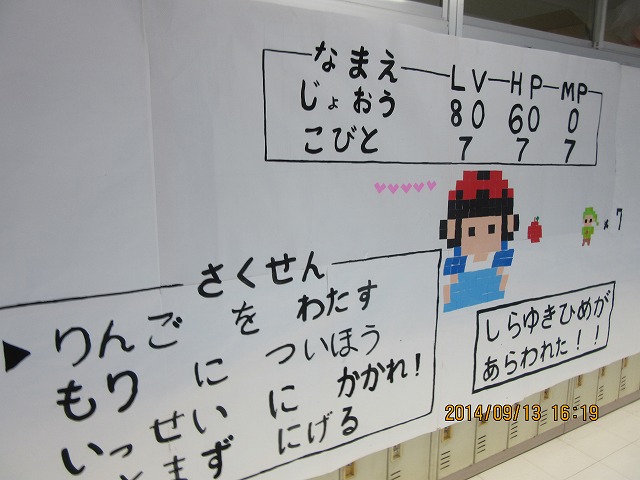 なまえ LV HP MP
じょおう 80 60 0
こびと 7 7 7
×7
さくせん
▶りんごをわたす
もりについほう
いっせいにかかれ!
まずにげる
しらゆきひめが
あらわれた!!
2014/09/13 16:19